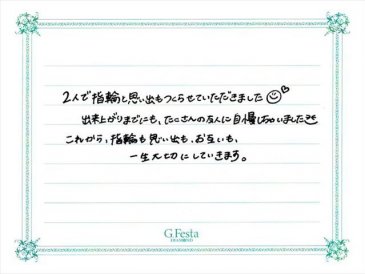 2人で指輪と思い出もつくらせていただきました
出来上がりまでにも、たくさんの友人に自慢しちゃいました
これから、指輪も思い出も、お互いも、
一生大切にしていきます。
G.Festa